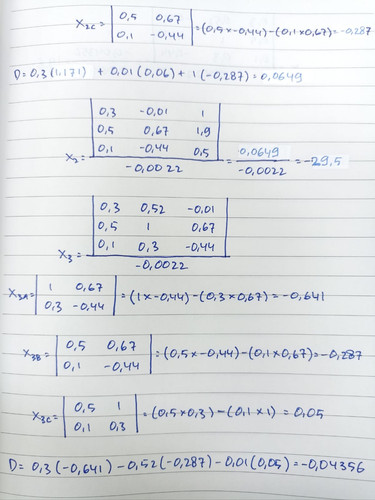 X2C = | 0,5 0,67 |
| 0,1 -0,44 | = (0,5 × -0,44) - (0,1 × 0,67) = -0,287
D = 0,3 (1,171) + 0,01 (0,06) + 1 (-0,287) = 0,0649
| 0,3 -0,01 1 |
| 0,5 0,67 1,9 |
| 0,1 -0,44 0,5 |
X2 = -0,0022 = 0,0649 / -0,0022 = -29,5
| 0,3 0,52 -0,01 |
| 0,5 1 0,67 |
| 0,1 0,3 -0,44 |
X3 = -0,0022
X3A = | 1 0,67 |
| 0,3 -0,44 | = (1 × -0,44) - (0,3 × 0,67) = -0,641
X3B = | 0,5 0,67 |
| 0,1 -0,44 | = (0,5 × -0,44) - (0,1 × 0,67) = -0,287
X3C = | 0,5 1 |
| 0,1 0,3 | = (0,5 × 0,3) - (0,1 × 1) = 0,05
D = 0,3 (-0,641) - 0,52 (-0,287) - 0,01 (0,05) = -0,04356